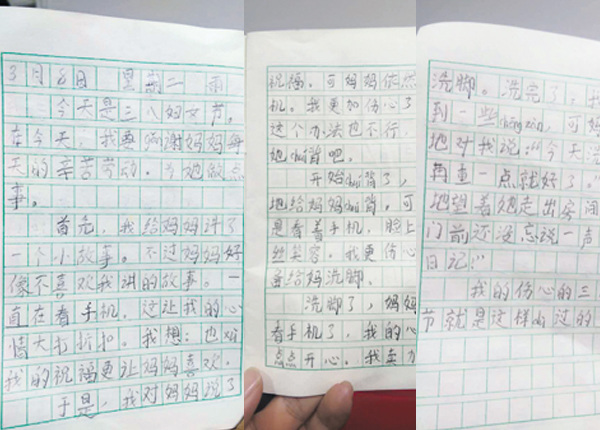 3月8日 星期二 雨
今天是三八妇女节。
在今天,我要gǎn谢妈妈每
天的辛苦劳动。为她做点
事。
首先,我给妈妈讲了
一个小故事。不过妈妈好
像不喜欢我讲的故事。一
直在看手机。这让我的心
情大打折扣。我想:也xǔ
我的祝福更让妈妈喜欢。
于是,我对妈妈说了
祝福。可妈妈依然
机。我更加伤心了
这个办法也不行,
她chuí背吧。
开始chuí背了,
地给妈妈chuí背。可
是看着手机,脸上
丝笑容。我更伤心
番给妈洗脚。
洗脚了,妈妈
看手机了,我的心
点点开心。我卖力
洗脚。洗完了,我
到一些,可妈
地对我说:“今天洗
再重一点就好了。”
地望着她走出房间
门前还没忘说一声
日记:”
我的伤心的三
节就是这样过的